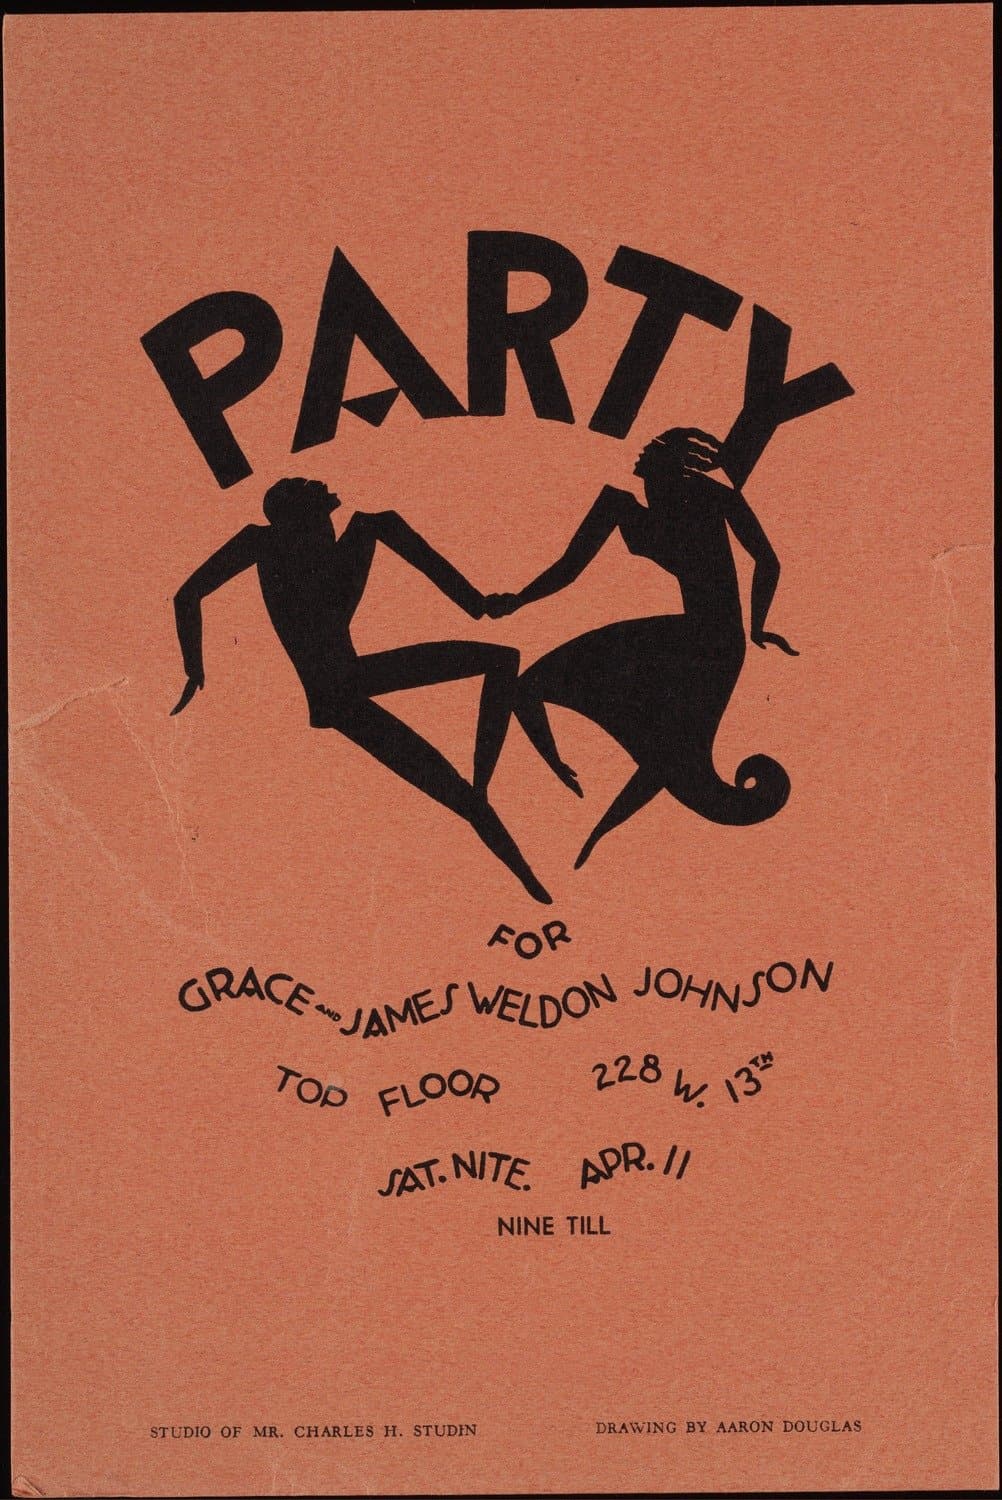 PARTY
FOR
GRACE AND JAMES WELDON JOHNSON
TOP FLOOR 228 W. 13TH
SAT. NITE. APR. 11
NINE TILL
STUDIO OF MR. CHARLES H. STUDIN
DRAWING BY AARON DOUGLAS